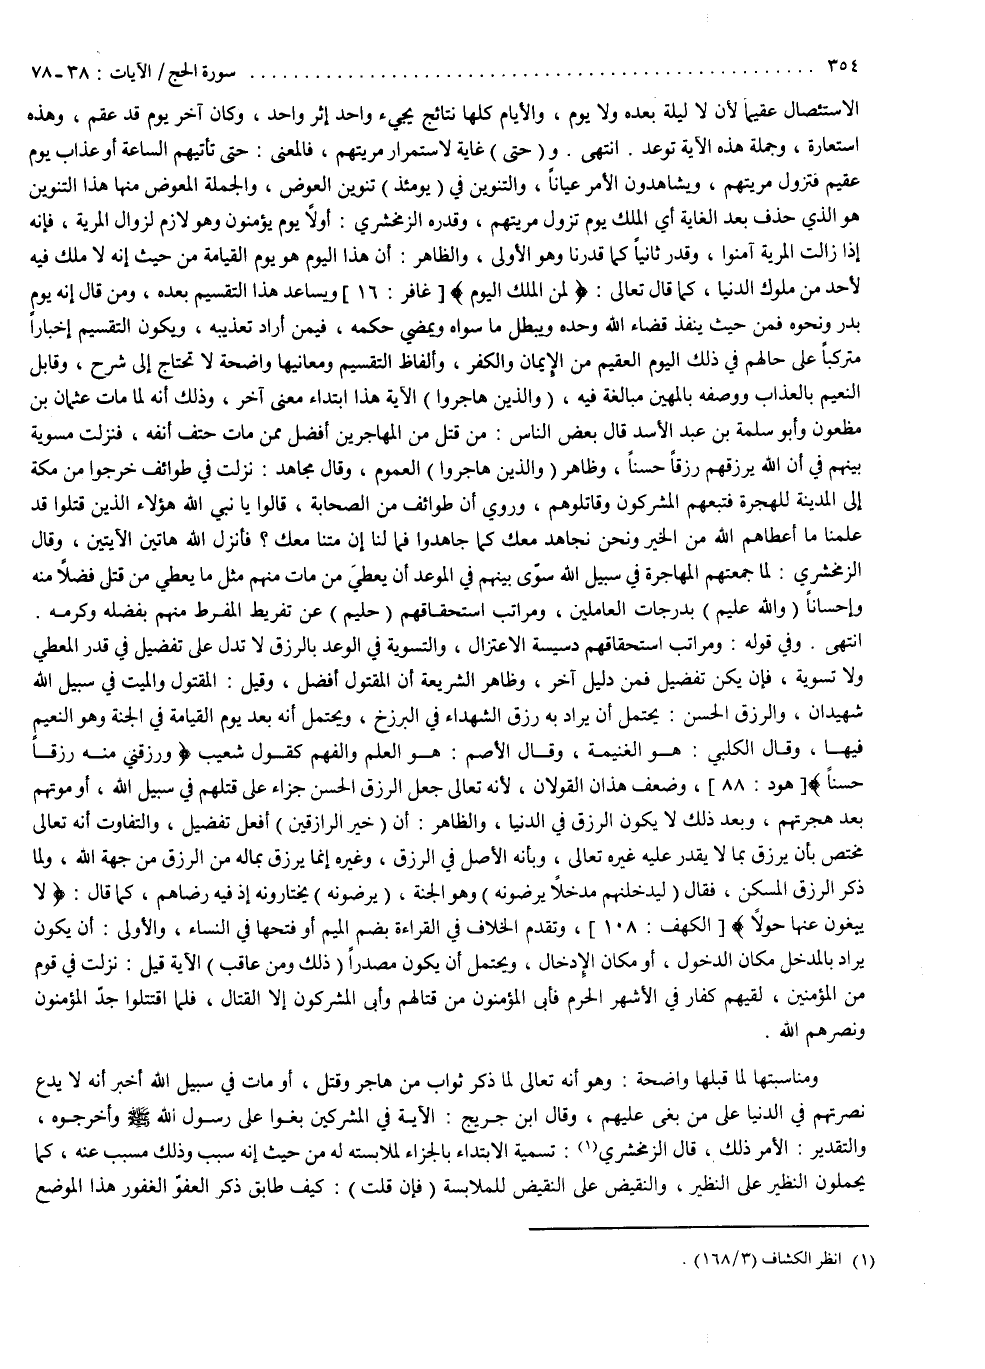 ٣٥٤ ........................................................ سورة الحج / الآيات : ٣٨ ـ ٧٨
الاستئصال عقيماً لأن لا ليلة بعده ولا يوم ، والأيام كلها نتائج يجيء واحد إثر واحد ، وكان آخر يوم قد عقم ، وهذه
استعارة ، وجملة هذه الآية توعد . انتهى . و( حتى ) غاية لاستمرار مريتهم ، فالمعنى : حتى تأتيهم الساعة أو عذاب يوم
عقيم فتزول مريتهم ، ويشاهدون الأمر عياناً ، والتنوين في ( يومئذ ) تنوين العوض ، والجملة المعوض منها هذا التنوين
هو الذي حذف بعد الغاية أي الملك يوم تزول مريتهم ، وقدره الزمخشري : أولاً يوم يؤمنون وهو لازم لزوال المرية ، فإنه
إذا زالت المرية آمنوا ، وقدر ثانياً كما قدرنا وهو الأولى ، والظاهر : أن هذا اليوم هو يوم القيامة من حيث إنه لا ملك فيه
لأحد من ملوك الدنيا ، كما قال تعالى : ﴿ لمن الملك اليوم ﴾ [ غافر : ١٦ ] ويساعد هذا التقسيم بعده ، ومن قال إنه يوم
بدر ونحوه فمن حيث ينفذ قضاء الله وحده ويبطل ما سواه ويمضي حكمه ، فيمن أراد تعذيبه ، ويكون التقسيم إخباراً
متركباً على حالهم في ذلك اليوم العقيم من الإيمان والكفر ، وألفاظ التقسيم ومعانيها واضحة لا تحتاج إلى شرح ، وقابل
النعيم بالعذاب ووصفه بالمهين مبالغة فيه ، ( والذين هاجروا ) الآية هذا ابتداء معنى آخر ، وذلك أنه لما مات عثمان بن
مظعون وأبو سلمة بن عبد الأسد قال بعض الناس : من قتل من المهاجرين أفضل ممن مات حتف أنفه ، فنزلت مسوية
بينهم في أن الله يرزقهم رزقاً حسناً ، وظاهر ( والذين هاجروا ) العموم ، وقال مجاهد : نزلت في طوائف خرجوا من مكة
إلى المدينة للهجرة فتبعهم المشركون وقاتلوهم ، وروي أن طوائف من الصحابة ، قالوا يا نبي الله هؤلاء الذين قتلوا قد
علمنا ما أعطاهم الله من الخير ونحن نجاهد معك كما جاهدوا فما لنا إن متنا معك ؟ فأنزل الله هاتين الآيتين ، وقال
الزمخشري : لما جمعتهم المهاجرة في سبيل الله سوّى بينهم في الموعد أن يعطيَ من مات منهم مثل ما يعطي من قتل فضلاً منه
وإحساناً ( والله عليم ) بدرجات العاملين ، ومراتب استحقاقهم ( حليم ) عن تفريط المفرط منهم بفضله وكرمه .
انتهى . وفي قوله : ومراتب استحقاقهم دسيسة الاعتزال ، والتسوية في الوعد بالرزق لا تدل على تفضيل في قدر المعطي
ولا تسوية ، فإن يكن تفضيل فمن دليل آخر ، وظاهر الشريعة أن المقتول أفضل ، وقيل : المقتول والميت في سبيل الله
شهيدان ، والرزق الحسن : يحتمل أن يراد به رزق الشهداء في البرزخ ، ويحتمل أنه بعد يوم القيامة في الجنة وهو النعيم
فيهـا ، وقال الكلبي : هـو الغنيمة ، وقـال الأصم : هـو العلم والفهم كقـول شعيب ﴿ ورزقني منـه رزقـاً
حسناً ﴾ [ هود : ٨٨ ] ، وضعف هذان القولان ، لأنه تعالى جعل الرزق الحسن جزاء على قتلهم في سبيل الله ، أو موتهم
بعد هجرتهم ، وبعد ذلك لا يكون الرزق في الدنيا ، والظاهر : أن ( خير الرازقين ) أفعل تفضيل ، والتفاوت أنه تعالى
مختص بأن يرزق بما لا يقدر عليه غيره تعالى ، وبأنه الأصل في الرزق ، وغيره إنما يرزق بماله من الرزق من جهة الله ، ولما
ذكر الرزق المسكن ، فقال ( ليدخلنهم مدخلاً يرضونه ) وهو الجنة ، ( يرضونه ) يختارونه إذ فيه رضاهم ، كما قال : ﴿ لا
يبغون عنها حولاً ﴾ [ الكهف : ١٠٨ ] ، وتقدم الخلاف في القراءة بضم الميم أو فتحها في النساء ، والأولى : أن يكون
يراد بالمدخل مكان الدخول ، أو مكان الإدخال ، ويحتمل أن يكون مصدراً ( ذلك ومن عاقب ) الآية قيل : نزلت في قوم
من المؤمنين ، لقيهم كفار في الأشهر الحرم فأبى المؤمنون من قتالهم وأبى المشركون إلا القتال ، فلما اقتتلوا جدّ المؤمنون
ونصرهم الله .
ومناسبتها لما قبلها واضحة : وهو أنه تعالى لما ذكر ثواب من هاجر وقتل ، أو مات في سبيل الله أخبر أنه لا يدع
نصرتهم في الدنيا على من بغى عليهم ، وقال ابن جريج : الآية في المشركين بغوا على رسول الله ﷺ وأخرجوه ،
والتقدير : الأمر ذلك ، قال الزمخشري(١) : تسمية الابتداء بالجزاء لملابسته له من حيث إنه سبب وذلك مسبب عنه ، كما
يحملون النظير على النظير ، والنقيض على النقيض للملابسة ( فإن قلت ) : كيف طابق ذكر العفوّ الغفور هذا الموضع
(١) انظر الكشاف (١٦٨/٣) .